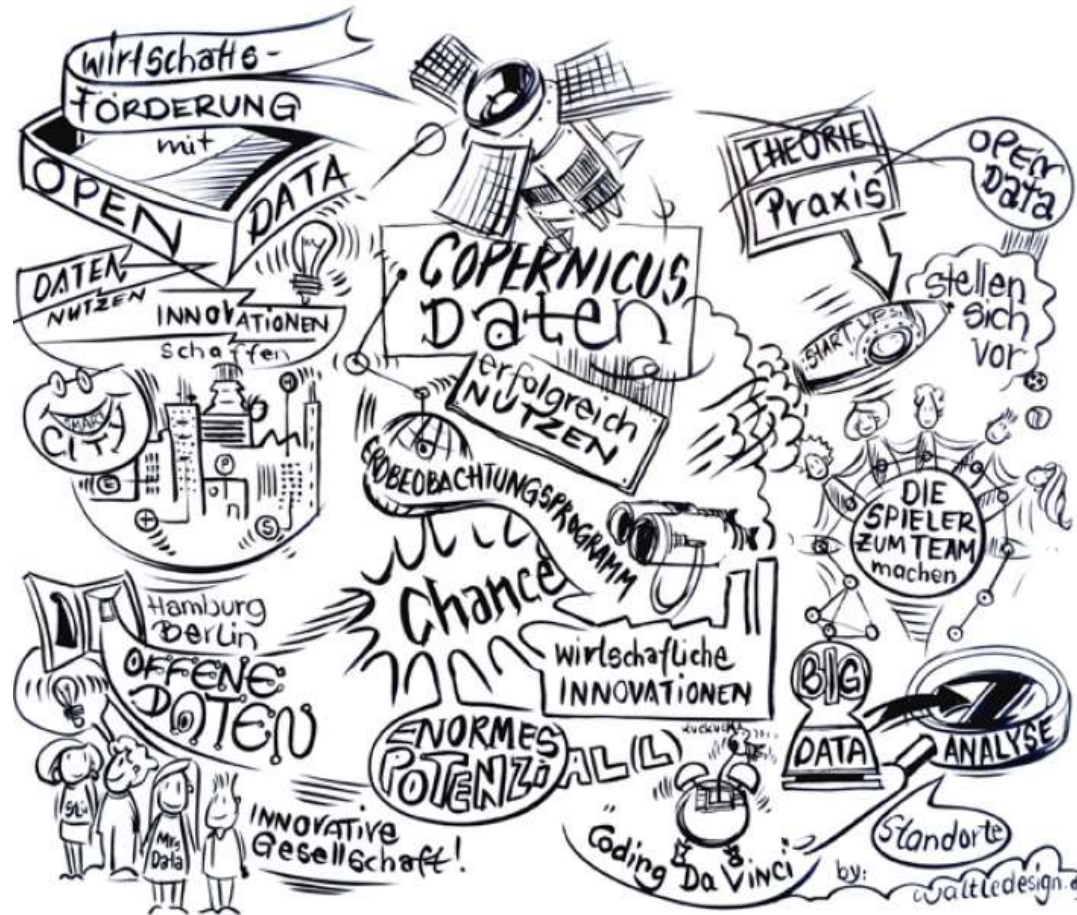 Wirtschafts-
FÖRDERUNG
mit
OPEN DATA
DATEN
NUTZEN
INNOVATIONEN
schaffen
SMART
CITY
H
P
E
S
n
Hamburg
Berlin
OFFENE
DATEN
Mrs
Data
INNOVATIVE
Gesellschaft!
COPERNICUS
Daten
erfolgreich
NUTZEN
ERDBEOBACHTUNGSPROGRAMM
Chance
wirtschafliche
INNOVATIONEN
ENORMES
POTENZiALL(L)
KUCKUCK!
Coding Da Vinci
THEORIE
Praxis
OPEN
Data
START UPS
stellen
sich
vor
DIE
SPIELER
ZUM TEAM
machen
BIG
DATA
ANALYSE
Standorte
by:
waltledesign.d